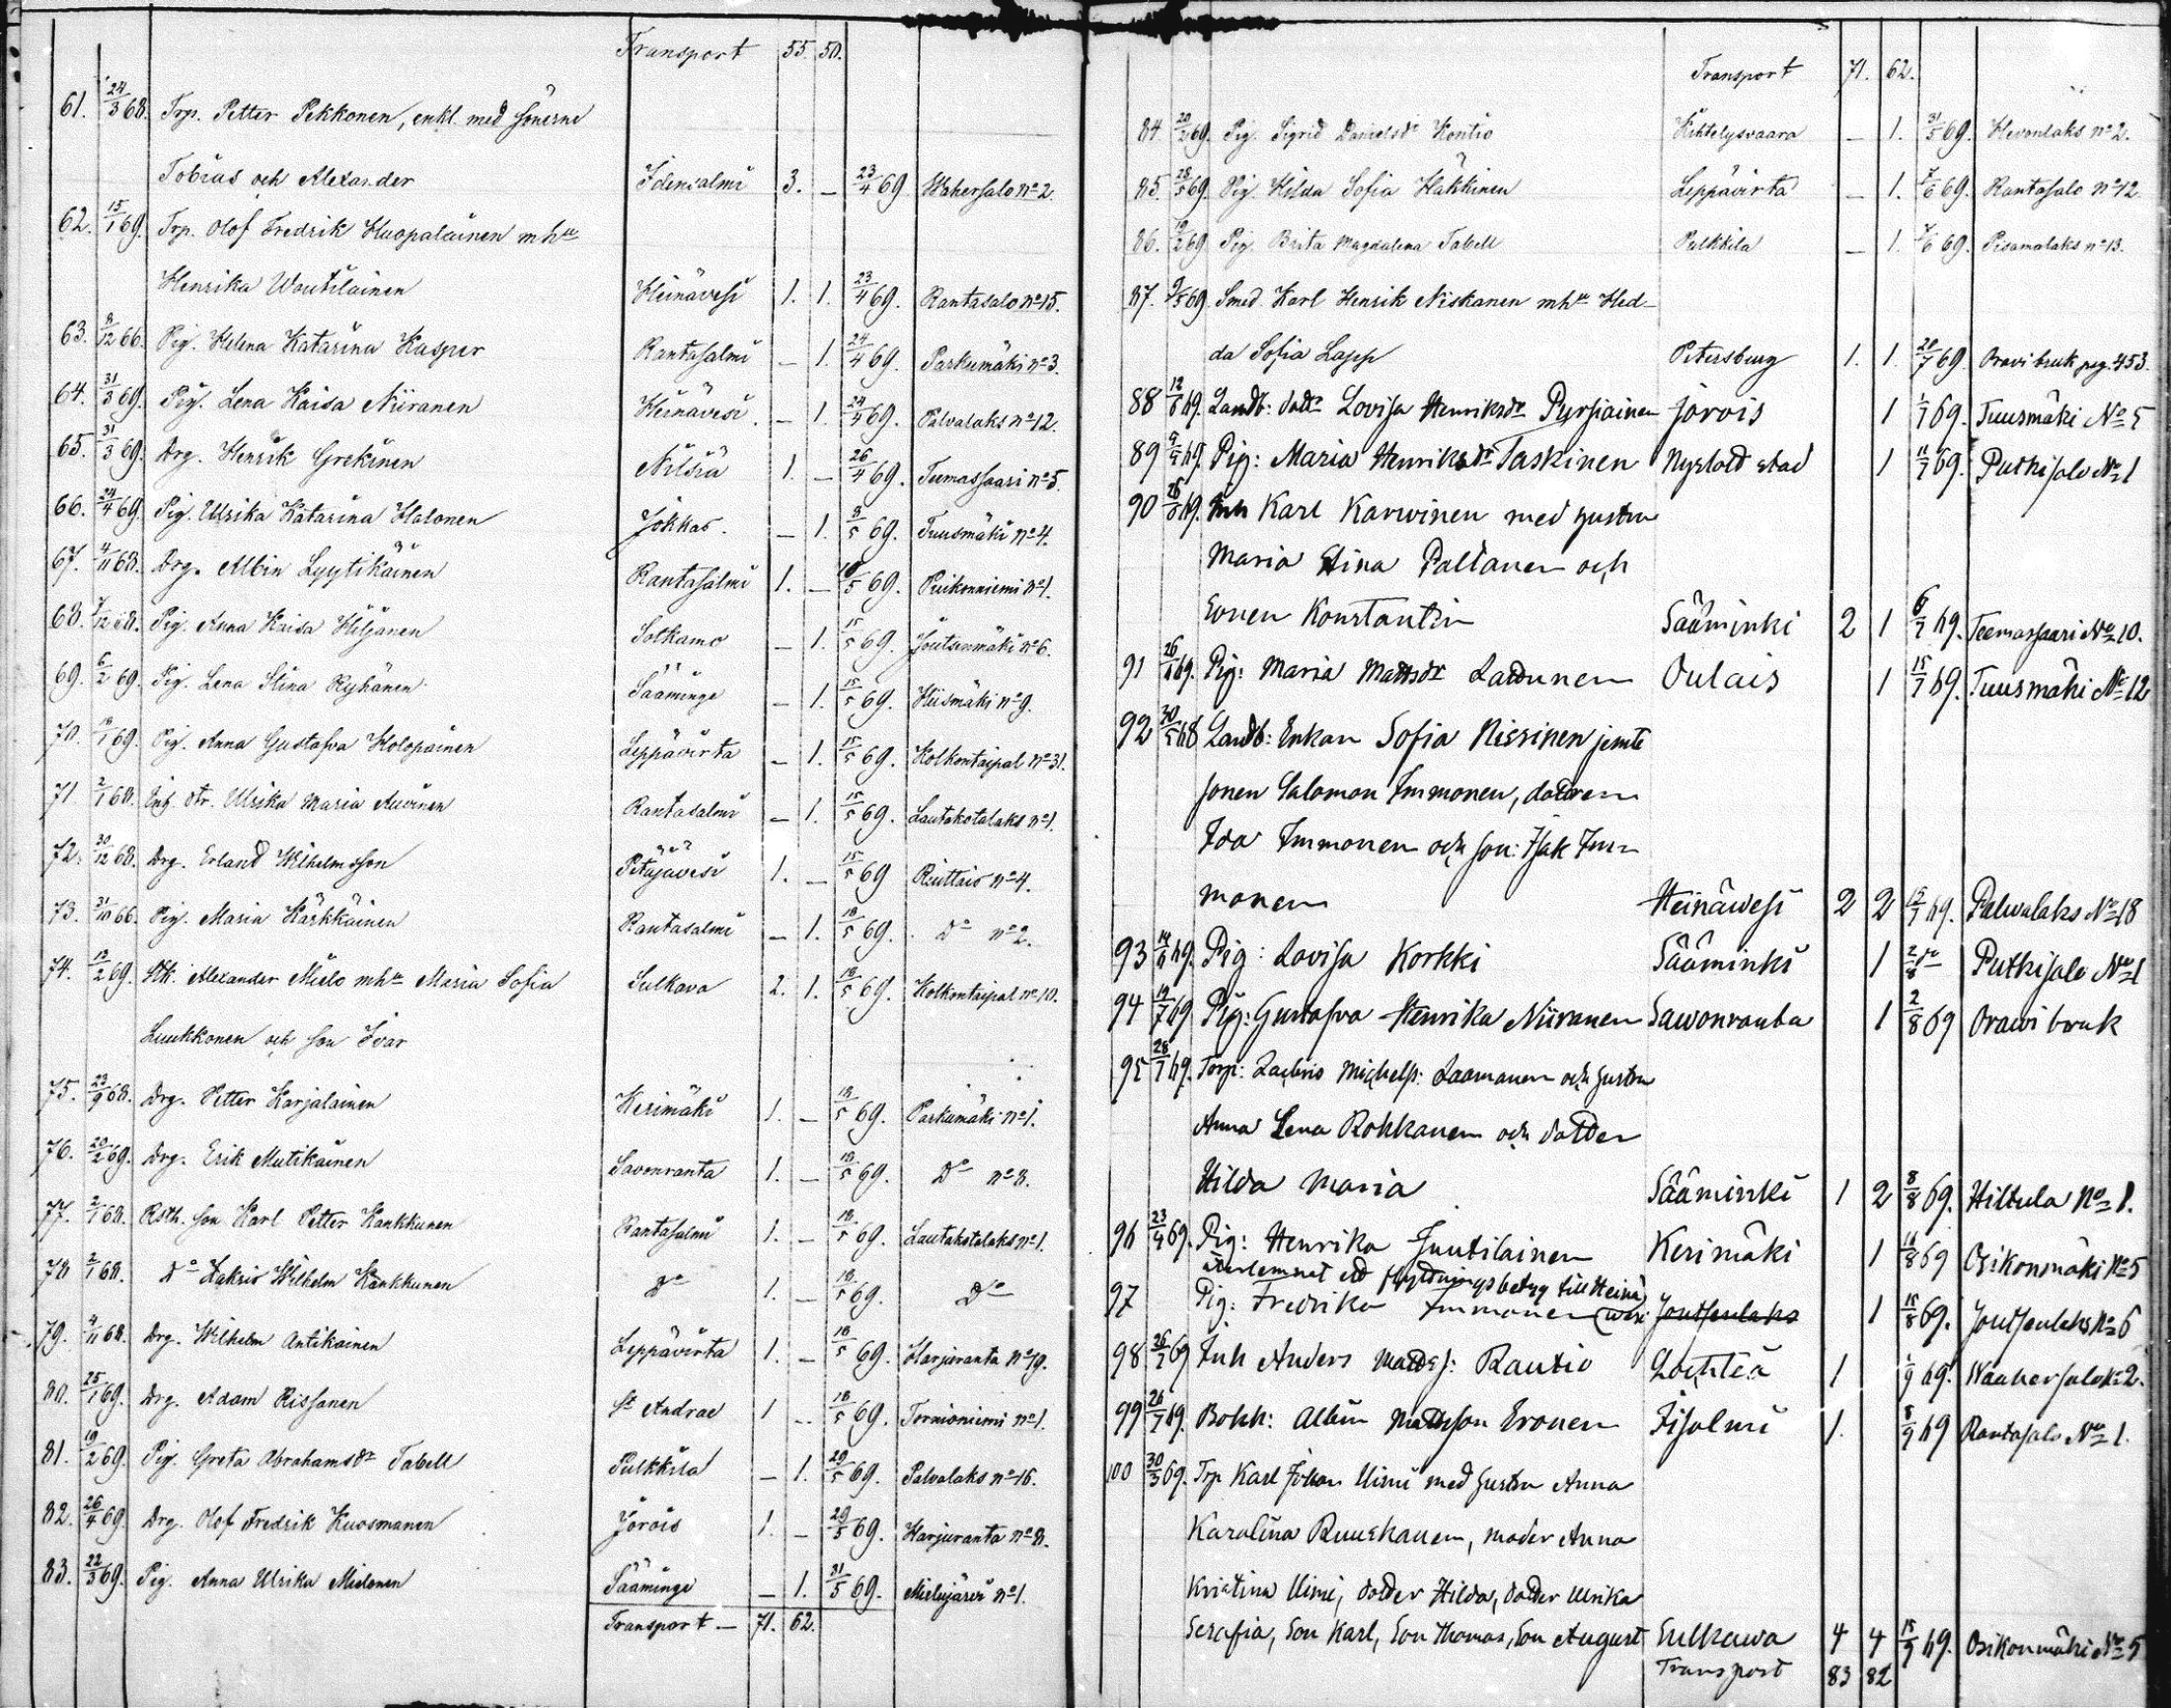 Transport 55. 50.
61. 24/3 68. Trp. Petter Pekkonen, enkl. med sönerne
Tobias och Alexander Idensalmi 3. – 23/4 69 Wahersalo no 2.
62. 15/1 69. Trp. Olof Fredrik Huopalainen mhu
Henrika Woutilainen Heinävesi 1. 1. 23/4 69. Rantasalo no 15.
63. 8/12 66. Pig. Helena Katarina Kasper Rantasalmi – 1. 24/4 69. Parkumäki no 3.
64. 31/3 69. Pig. Lena Kaisa Niiranen Heinävesi. – 1. 24/4 69. Palvalaks no 12.
65. 31/3 69. Drg. Henrik Grekinen Nilsiä 1. – 26/4 69. Teemassaari no 5.
66. 24/4 69. Pig. Ulrika Katarina Halonen Jokkas. – 1. 8/5 69. Tuusmäki no 4.
67. 4/11 68. Drg. Albin Lyytikäinen Rantasalmi 1. – 10/5 69. Puikonniemi no 1.
68. 7/12 68. Pig. Anna Kaisa Hiljanen Sotkamo – 1. 15/5 69. Joutsenmäki no 6.
69. 6/2 69. Pig. Lena Stina Ryhänen Sääminge – 1. 15/5 69. Hiismäki no 9.
70. 18/1 69. Pig. Anna Gustafva Holopainen Leppävirta – 1. 15/5 69. Kolkontaipal no 31.
71. 2/1 68. Inh. dtr. Ulrika Maria Auvinen Rantasalmi – 1. 15/5 69. Lautakotalaks no 1.
72. 30/12 68. Drg. Erland Wilhelmsson Petäjävesi 1. – 15/5 69 Ruuttais no 4.
73. 31/10 66. Pig. Maria Kärkkäinen Rantasalmi – 1. 18/5 69. Do no 2.
74. 12/2 69. Stk. Alexander Mielo mhu Maria Sofia Sulkava 2. 1. 18/5 69. Kolkontaipal no 10.
Luukkonen och son Ivar
75. 23/9 68. Drg. Petter Karjalainen Kerimäki 1. – 18/5 69. Parkumäki no 1.
76. 20/2 69. Drg. Erik Mutikainen Savonranta 1. – 18/5 69. Do no 8.
77. 2/1 68. Rsth. son Karl Petter Kankkunen Rantasalmi 1. – 18/5 69. Lautakotalaks no 1.
78 2/1 68. Do Zakris Wilhelm Kankkunen Do 1. – 18/5 69. Do
79. 4/11 68. Drg. Wilhelm Antikainen Leppävirta 1. – 18/5 69. Harjuranta no 19.
80. 25/1 69. Drg. Adam Rissanen St Andrae 1 – 18/5 69. Tornioniemi no 1.
81. 19/2 69. Pig. Greta Abrahamsdr Tabell Pulkkila – 1. 29/5 69. Palvalaks no 16.
82. 26/4 69. Drg. Olof Fredrik Kuosmanen Jorois 1. – 29/5 69. Harjuranta no 8.
83. 22/3 69. Pig. Anna Ulrika Mielonen Sääminge – 1. 31/5 69. Mielujärvi no 1.
Transport – 71. 62.
Transport 71. 62.
84. 20/2 69. Pig. Sigrid Danielsdr Kontio Kihtelysvaara – 1. 31/5 69. Hevonlaks no 2.
85. 28/5 69. Pig. Hilda Sofia Häkkinen Leppävirta – 1. 7/6 69. Rantasalo no 12.
86. 19/2 69 Pig. Brita Magdalena Tabell Pulkkila – 1. 7/6 69. Pisamalaks no 13.
87. 9/5 69 Smed. Karl Henrik Niskanen mhu Hed-
da Sofia Lapp Petersburg 1. 1. 20/7 69 Oravi bruk pag. 453.
88 12/6 69. Landb: dottr Lovisa Henriksdr Pursiainen Jorois 1 1/7 69. Tuusmäki No 5
89 9/4 69. Pig: Maria Henriksdr Taskinen Nyslott stad 1 11/7 69. Putkisalo No 1
90 69. Inh Karl Karwinen med hustru
Maria Stina Paltanen och
Sonen Konstantin Sääminki 2 1 6/7 69. Teemassaari No 10.
91 26/6 69. Pig: Maria Mattsdr Laddunen Oulais 1 15/7 69. Tuusmäki No 12
92 30/5 68 Landb: Enkan Sofia Nissinen jemte
Sonen Salomon Immonen, dottren
Ida Immonen och son: Isak Im-
monen Heinäwesi 2 2 15/7 69. Palwalaks No 18
93 14/6 69. Pig: Lovisa Korkki Sääminki 1 2/8 Putkisalo No 1
94 19/7 69 Pig: Gustafva Henrika Niiranen Sawonranta 1 2/8 69 Orawi bruk
95 28/7 69. Torp: Zachris Michelss: Laamanen och hustru
Anna Lena Rohkanen och dotter
Hilda Maria Sääminki 1 2 8/8 69. Hiltula No 1.
96 23/4 69. Pig: Henrika Juutilainen Kerimäki 1 69 Osikonmäki No 5
återlemnat ett flyttningsbetyg till Heinä
97 Pig: Fredrika Immonen (wesi Joutsenlaks 1 15/8 69. Joutsenlaks No 6
98 26/7 69 Inh Anders Mattss: Rautio Lochteå 1 1/9 69. Waahersalo No 2.
99 26/7 69. Bokh: Albin Mattsson Eronen Iisalmi 1. 8/9 69 Rantasalo No 1.
100 30/3 69. Trp Karl Johan Uimi med hustru Anna
Karolina Ruuskanen, moder Anna
Kristina Uimi, dotter Hilda, dotter Ulrika
Serafia, Son Karl, Son Thomas, Son August Sulkawa 4 4 15/9 69. Osikonmäki No 5
Transport 83 82